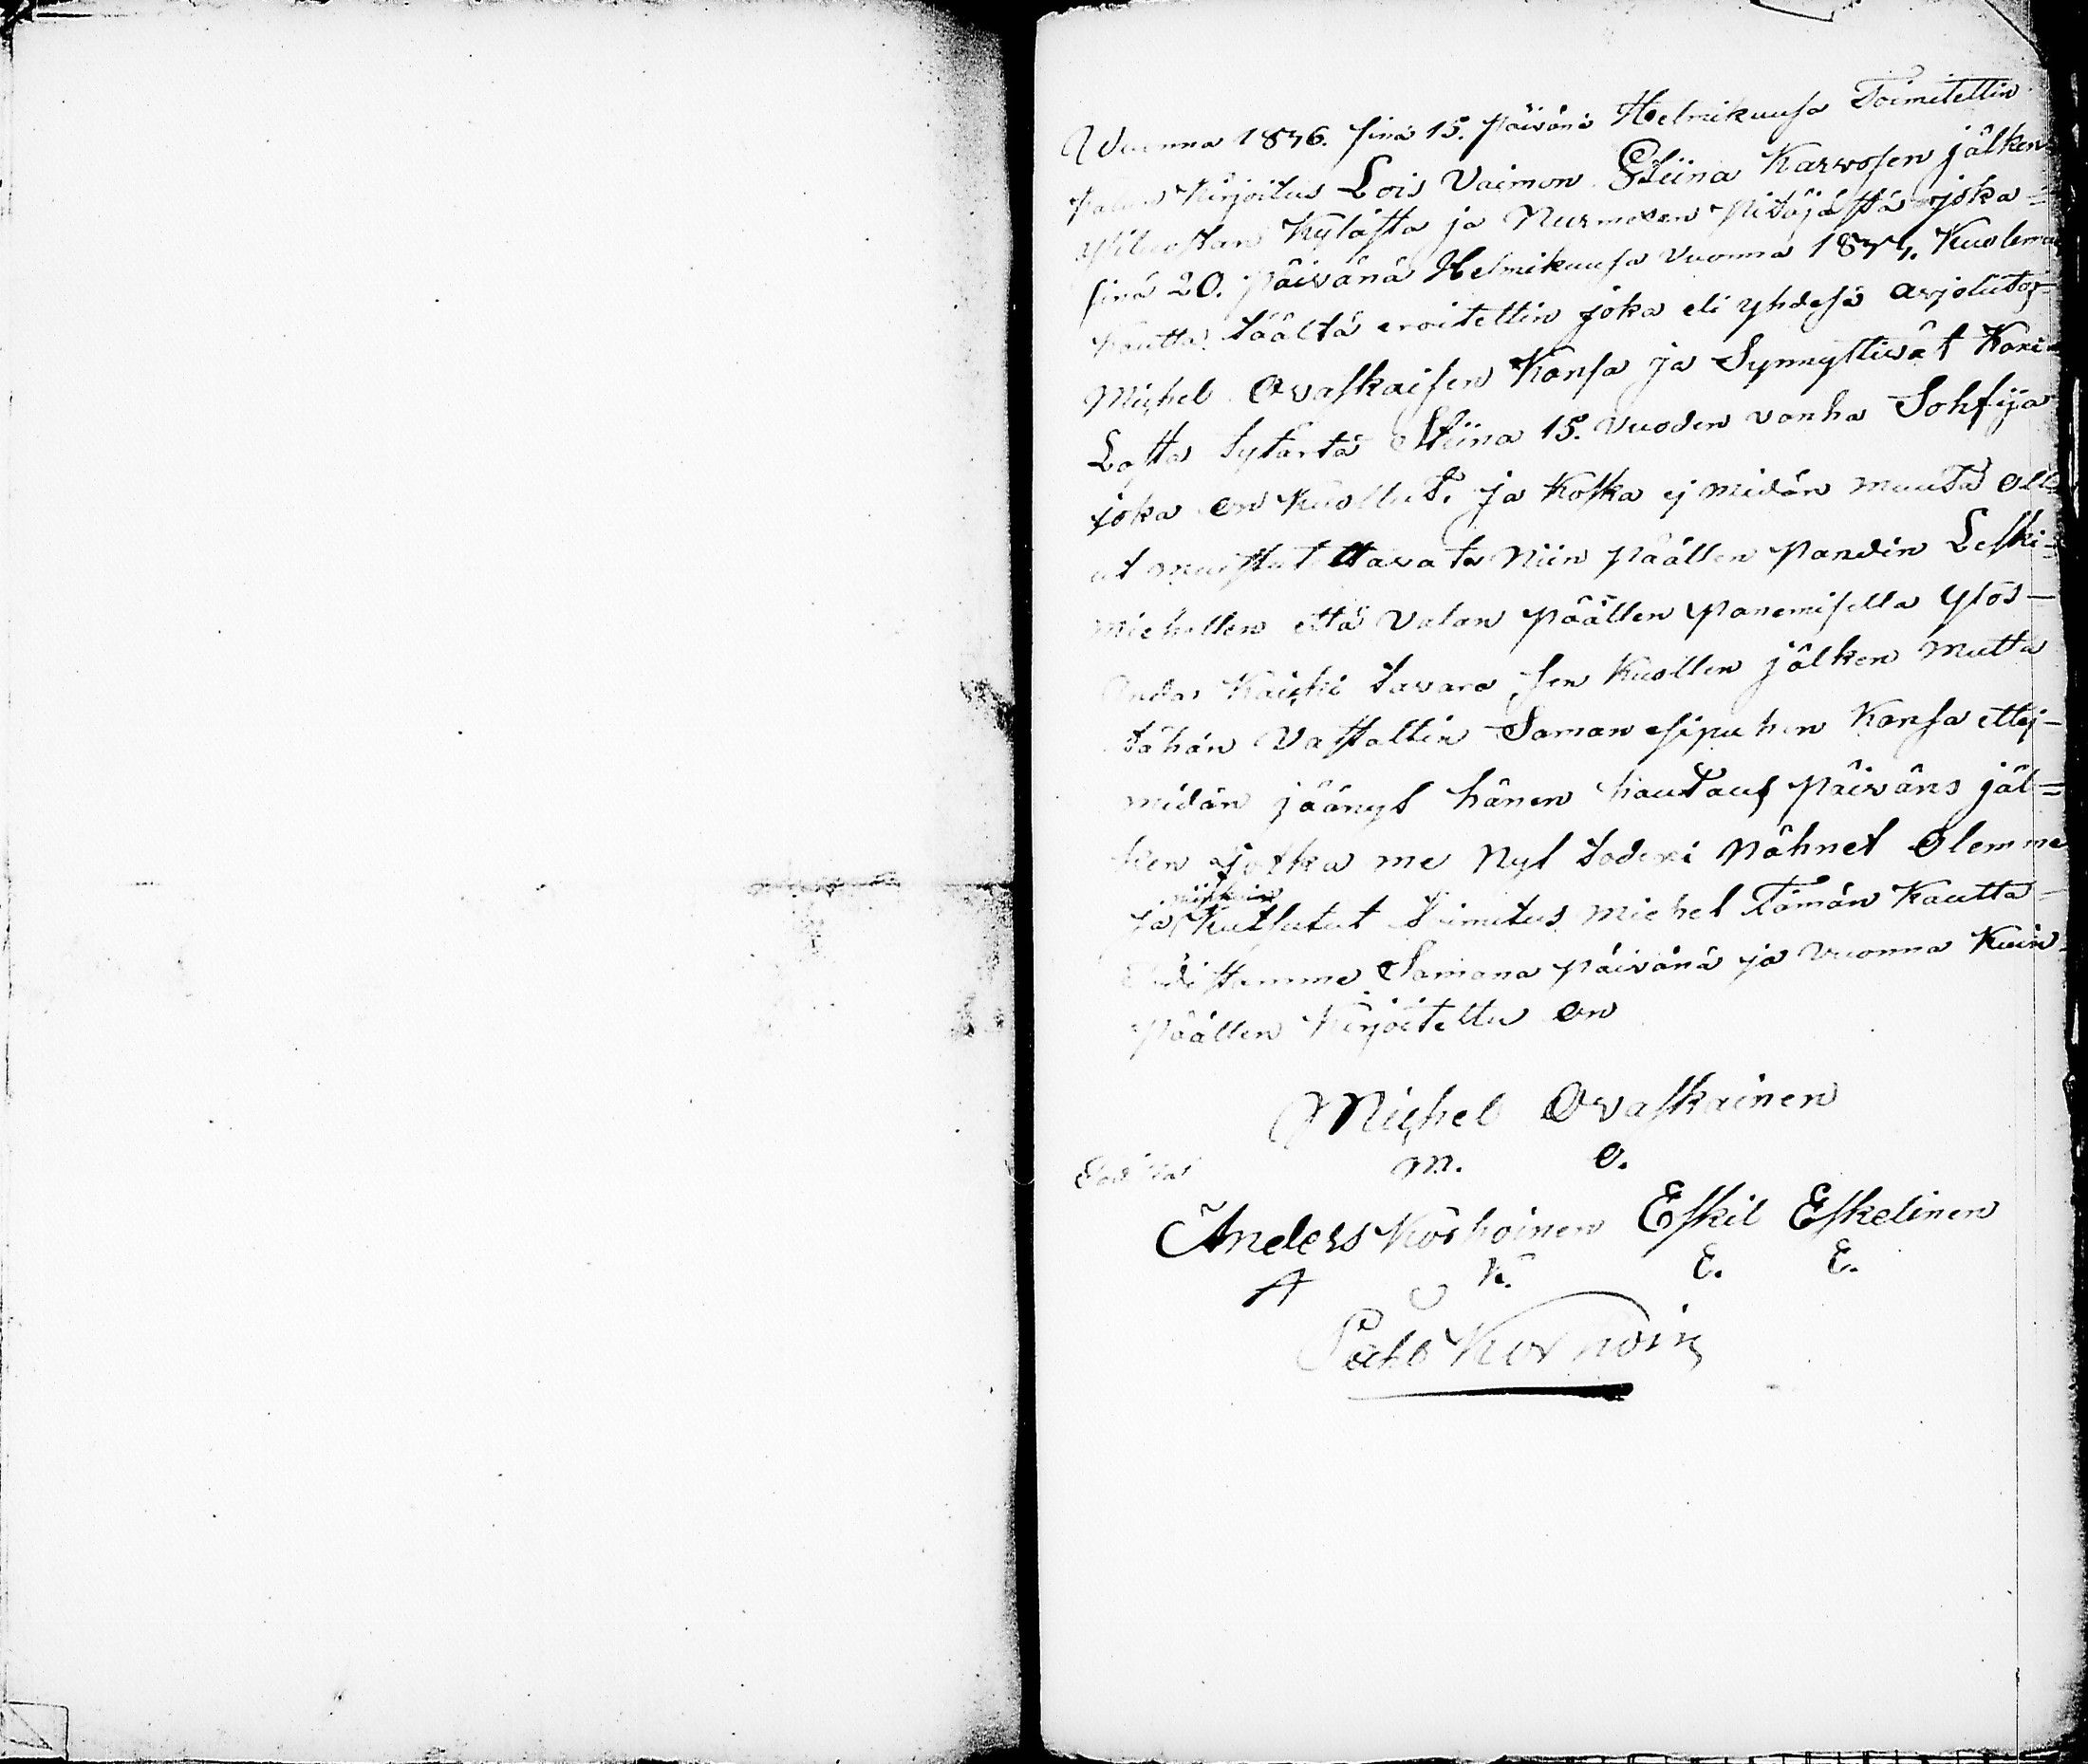 Wuonna 1876. sinä 15. päivänä Helmikuusa Toimitettin
Kirjoitus Lois Vaimon Stiina Karvosen jälken
Kylästä ja Nurmeksen Pitäjästä joka=
sinä 20. päivänä Helmikuusa vuonna 1874. Kuoleman
kautta täältä eroitettin joka eli yhdesä avjolütos=
Michel Ovaskaisen Kansa ja Synnyttivät Kaxi
Lasta tytärtä Stiina 15. vuoden vanha Sohfija
joka on kuollut. ja koska ej midän muuta oll=
ut muistutettavata Niin päällen pandin Leski=
michellen että valan päällen panemisella ylös-
Andas Kaicki tavara sen kuollen jälken mutta
tähän Vastattin Saman esipuhen Kansa ettej-
midän jäänyt hänen hautaus päiväns jäl=
ken jotka me Nyt todexi Nähnet olemme
niinkuin
ja kutsutut toimitus michel Tämän Kautta=
distamme Samana päivänä ja vuonna Kuin
Päällen kirjoitettu on
Michel Ovaskainen
M. O.
Anders Korhoinen Eskil Eskelinen
A K. E. E.